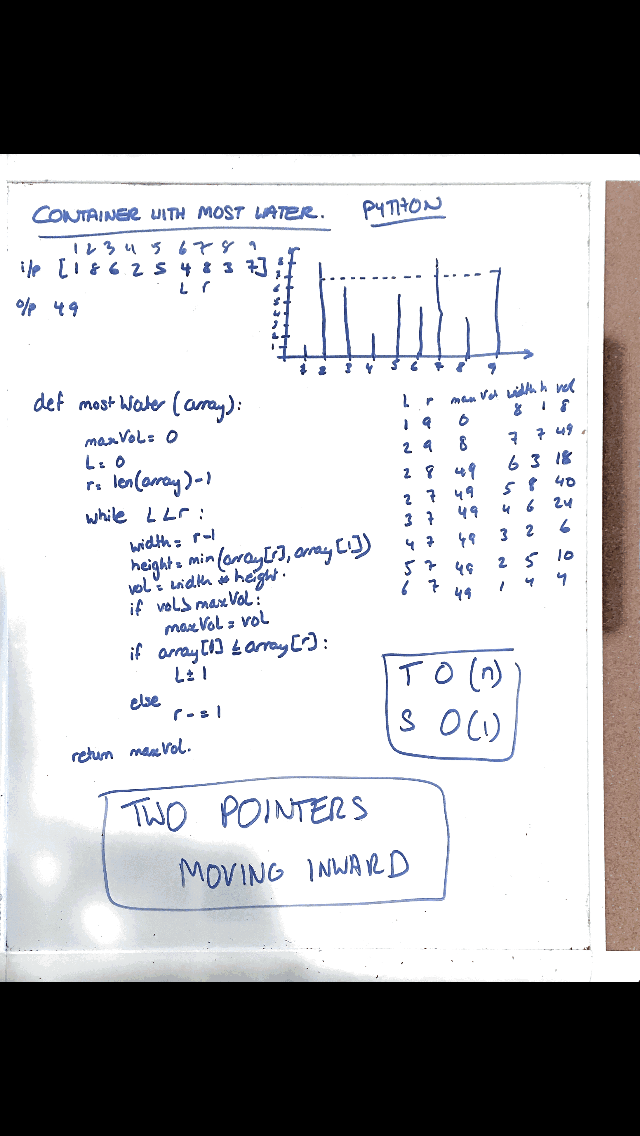 CONTAINER WITH MOST WATER. PYTHON
1 2 3 4 5 6 7 8 9
i/p [1 8 6 2 5 4 8 3 7]
L r
o/p 49
8
7
6
5
4
3
2
1
1 2 3 4 5 6 7 8 9
def mostWater(array):
maxVol = 0
L = 0
r = len(array)-1
while L < r:
width = r-l
height = min(array[r], array[l])
vol = width * height.
if vol > maxVol:
maxVol = vol
if array[l] ≤ array[r]:
L += 1
else
r -= 1
return maxVol.
L r maxVol width h vol
1 9 0 8 1 8
2 9 8 7 7 49
2 8 49 6 3 18
2 7 49 5 8 40
3 7 49 4 6 24
4 7 49 3 2 6
5 7 49 2 5 10
6 7 49 1 4 4
T O(n)
S O(1)
TWO POINTERS
MOVING INWARD